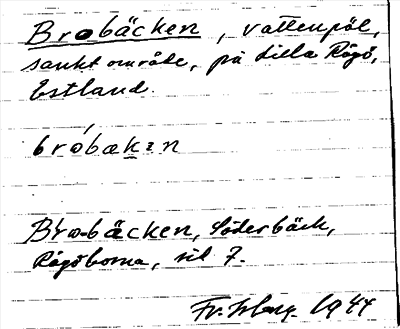 Brobäcken, vattenpöl,
sankt område, på Lilla Rågö,
Estland.
bròbækən
Bro-bäcken, Söderbäck,
Rågöborna, sid 7.
1944